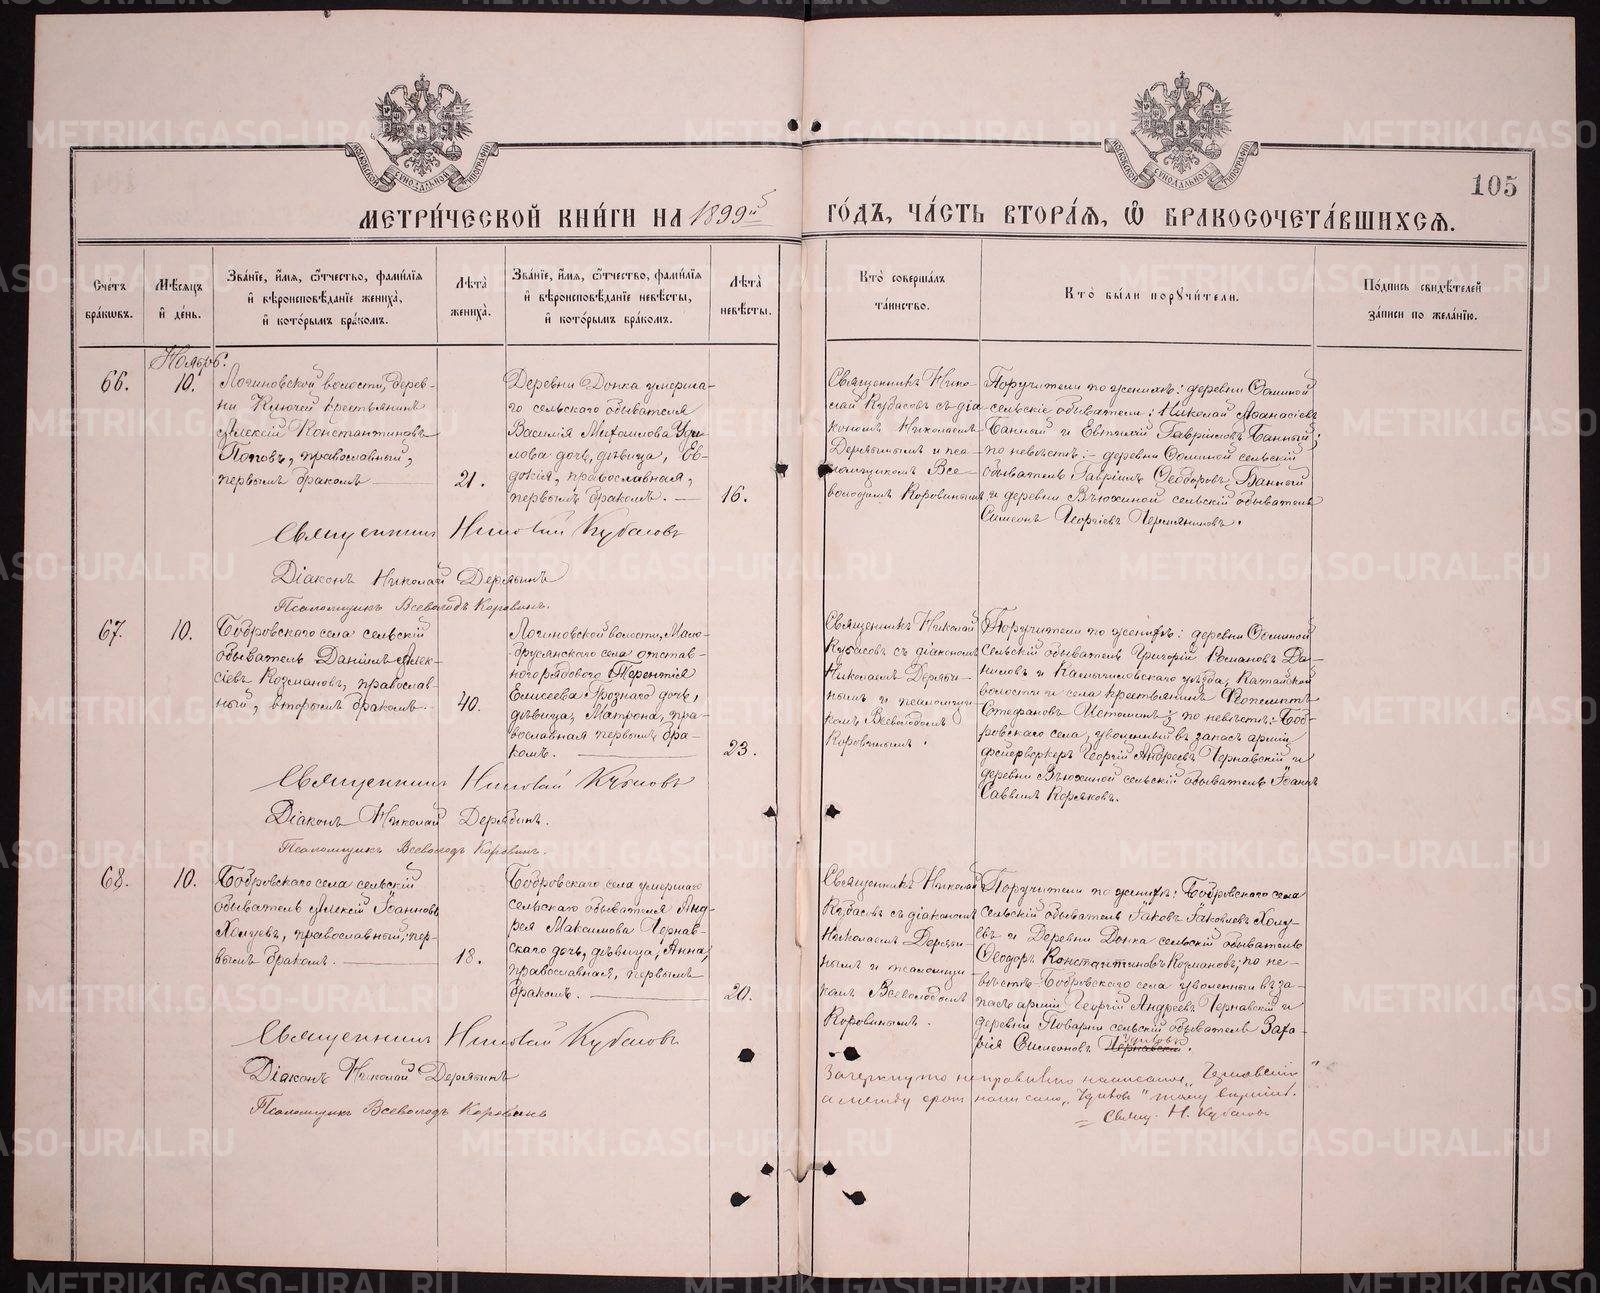 105
МЕТРИ́ЧЕСКОЙ КНИ́ГИ НА 1899й
ГО́ДЪ, ЧА́СТЬ ВТОРА́Я, Ѡ БРАКОСОЧЕТА́ВШИХСЯ.
Сче́тъ бра́кѡвъ.
Мѣ́сяцъ и де́нь.
Зва́нїе, и́мя, ѻ́тчество, фами́лїя и вѣроисповѣ́данїе жениха̀, и кото́рымъ бра́комъ.
Лѣ́та жениха̀.
Зва́нїе, и́мя, ѻ́тчество, фами́лїя и вѣроисповѣ́данїе невѣ́сты, и кото́рымъ бра́комъ.
Лѣ́та невѣ́сты.
Кто̀ соверша́лъ та́инство.
Кто̀ бы́ли порꙋчи́тели.
По́дпись свидѣ́телей за́писи по жела́нїю.
Ноябрь.
66.
10.
Логиновской волости, дерев-
ни Ключей крестьянинъ
Алексій Константиновъ
Поповъ, православный,
первымъ бракомъ
21.
Деревни Донка умерша-
го сельскаго обывателя
Василія Михаилова Уди-
лова дочь, дѣвица, Ев-
докія, православная,
первымъ бракомъ.
16.
Священникъ Нико-
лай Кубасовъ съ діа-
кономъ Николаемъ
Дерябинымъ и пса-
ломщикомъ Все-
володомъ Коровинымъ
Поручители по женихѣ: деревни Ѳоминой
сельскіе обыватели: Николай Аѳанасіевъ
Банный и Евтихій Гавріиловъ Банный;
по невѣстѣ: деревни Ѳоминой сельскій
обыватель Гавріилъ Ѳеодоровъ Банный
и деревни Вьюхиной сельскій обыватель
Симеонъ Георгіевъ Пермяниковъ.
Священникъ Николай Кубасовъ
Діаконъ Николай Дерябинъ
Псаломщикъ Всеволодъ Коровинъ.
67.
10.
Бобровскаго села сельскій
обыватель Даніилъ Алек-
сіевъ Козмановъ, православ-
ный, вторымъ бракомъ.
40.
Логиновской волости, Мало-
брусянскаго села отстав-
ного рядового Терентія
Елисеева Грознаго дочь,
дѣвица, Матрона, пра-
вославная первымъ бра-
комъ.
23.
Священникъ Николай
Кубасовъ съ діакономъ
Николаемъ Деряби-
нымъ и псаломщи-
комъ Всеволодомъ
Коровинымъ.
Поручители по женихѣ: деревни Ѳоминой
сельскій обыватель Григорій Романовъ Да-
ниловъ и Камышловскаго уѣзда, Катайской
волости и села крестьянинъ
Стефановъ Истоминъ; по невѣстѣ: Боб-
ровскаго села, уволенный въ запасъ арміи
фейерверкеръ Георгій Андреевъ Чернавскій и
деревни Вьюхиной сельскій обыватель Іоаннъ
Саввинъ Коряковъ.
Священникъ Николай Кубасовъ
Діаконъ Николай Дерябинъ.
Псаломщикъ Всеволодъ Коровинъ.
68.
10.
Бобровскаго села сельскій
обыватель Алексій Іоанновъ
Холуевъ, православный, пер-
вымъ бракомъ.
18.
Бобровскаго села умершаго
сельскаго обывателя Анд-
рея Максимова Чернав-
скаго дочь, дѣвица, Анна,
православная, первымъ
бракомъ.
20.
Священникъ Николай
Кубасовъ съ діакономъ
Николаемъ Деряби-
нымъ и псаломщи-
комъ Всеволодомъ
Коровинымъ.
Поручители по женихѣ: Бобровскаго села
сельскій обыватель Іаковъ Іаковлевъ Холу-
евъ и Деревни Донка сельскій обыватель
Ѳеодоръ Константиновъ Козмановъ; по не-
вѣстѣ: Бобровскаго села уволенный въ за-
пасъ арміи Георгій Андреевъ Чернавскій и
деревни Поварни сельскій обыватель Заха-
рія Симеоновъ Чернавскій.
Священникъ Николай Кубасовъ
Діаконъ Николай Дерябинъ
Псаломщикъ Всеволодъ Коровинъ
Зачеркнуто неправильно написанное „Чернавскій“
а между строк написано тому вѣрить.
Свящ. Н. Кубасовъ